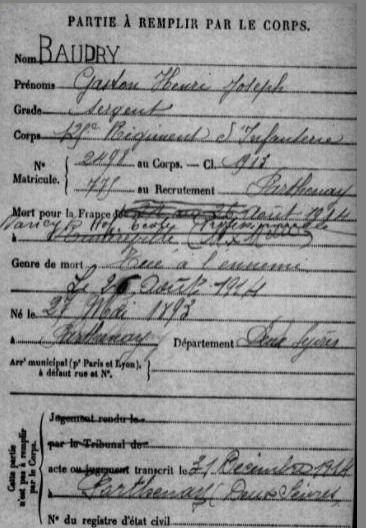 PARTIE À REMPLIR PAR LE CORPS.
Nom BAUDRY
Prénoms Gaston Henri Joseph
Grade Sergent
Corps Régiment d'Infanterie
N° 2498 au Corps. — Cl. 1913
Matricule. 775 au Recrutement Parthenay
Mort pour la France le août 1914
Nancy Hop.
à
Genre de mort Tué à l'ennemi
Le 26 Août 1914
Né le 27 Mai 1893
à Parthenay Département Deux Sèvres
Arrᵗ municipal (pʳ Paris et Lyon),
à défaut rue et N°.
Cette partie
n'est pas à remplir
par le Corps.
Jugement rendu le
par le Tribunal de
acte ou jugement transcrit le 21 Décembre 1914
à Parthenay Deux Sèvres
N° du registre d'état civil